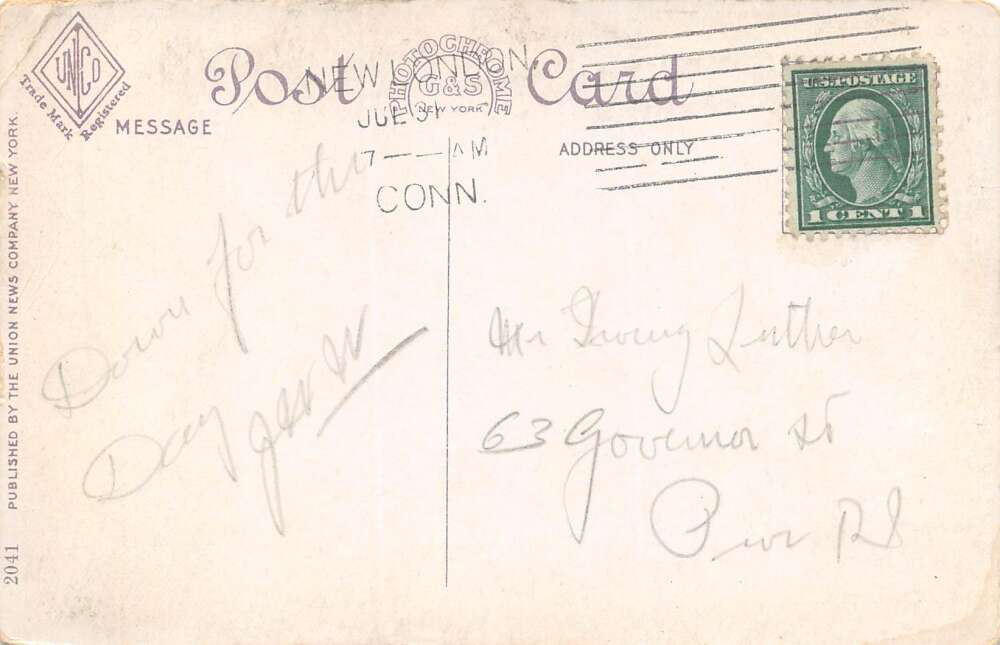 UNCO
Trade Mark Registered
MESSAGE
Post Card
PHOTOCHROME
G&S
NEW YORK
NEW LONDON,
7— AM
CONN.
ADDRESS ONLY
U.S. POSTAGE
1 CENT 1
PUBLISHED BY THE UNION NEWS COMPANY NEW YORK.
2041
Down for the
Day
Mr Irving Luther
63 Governor St
Prov RI